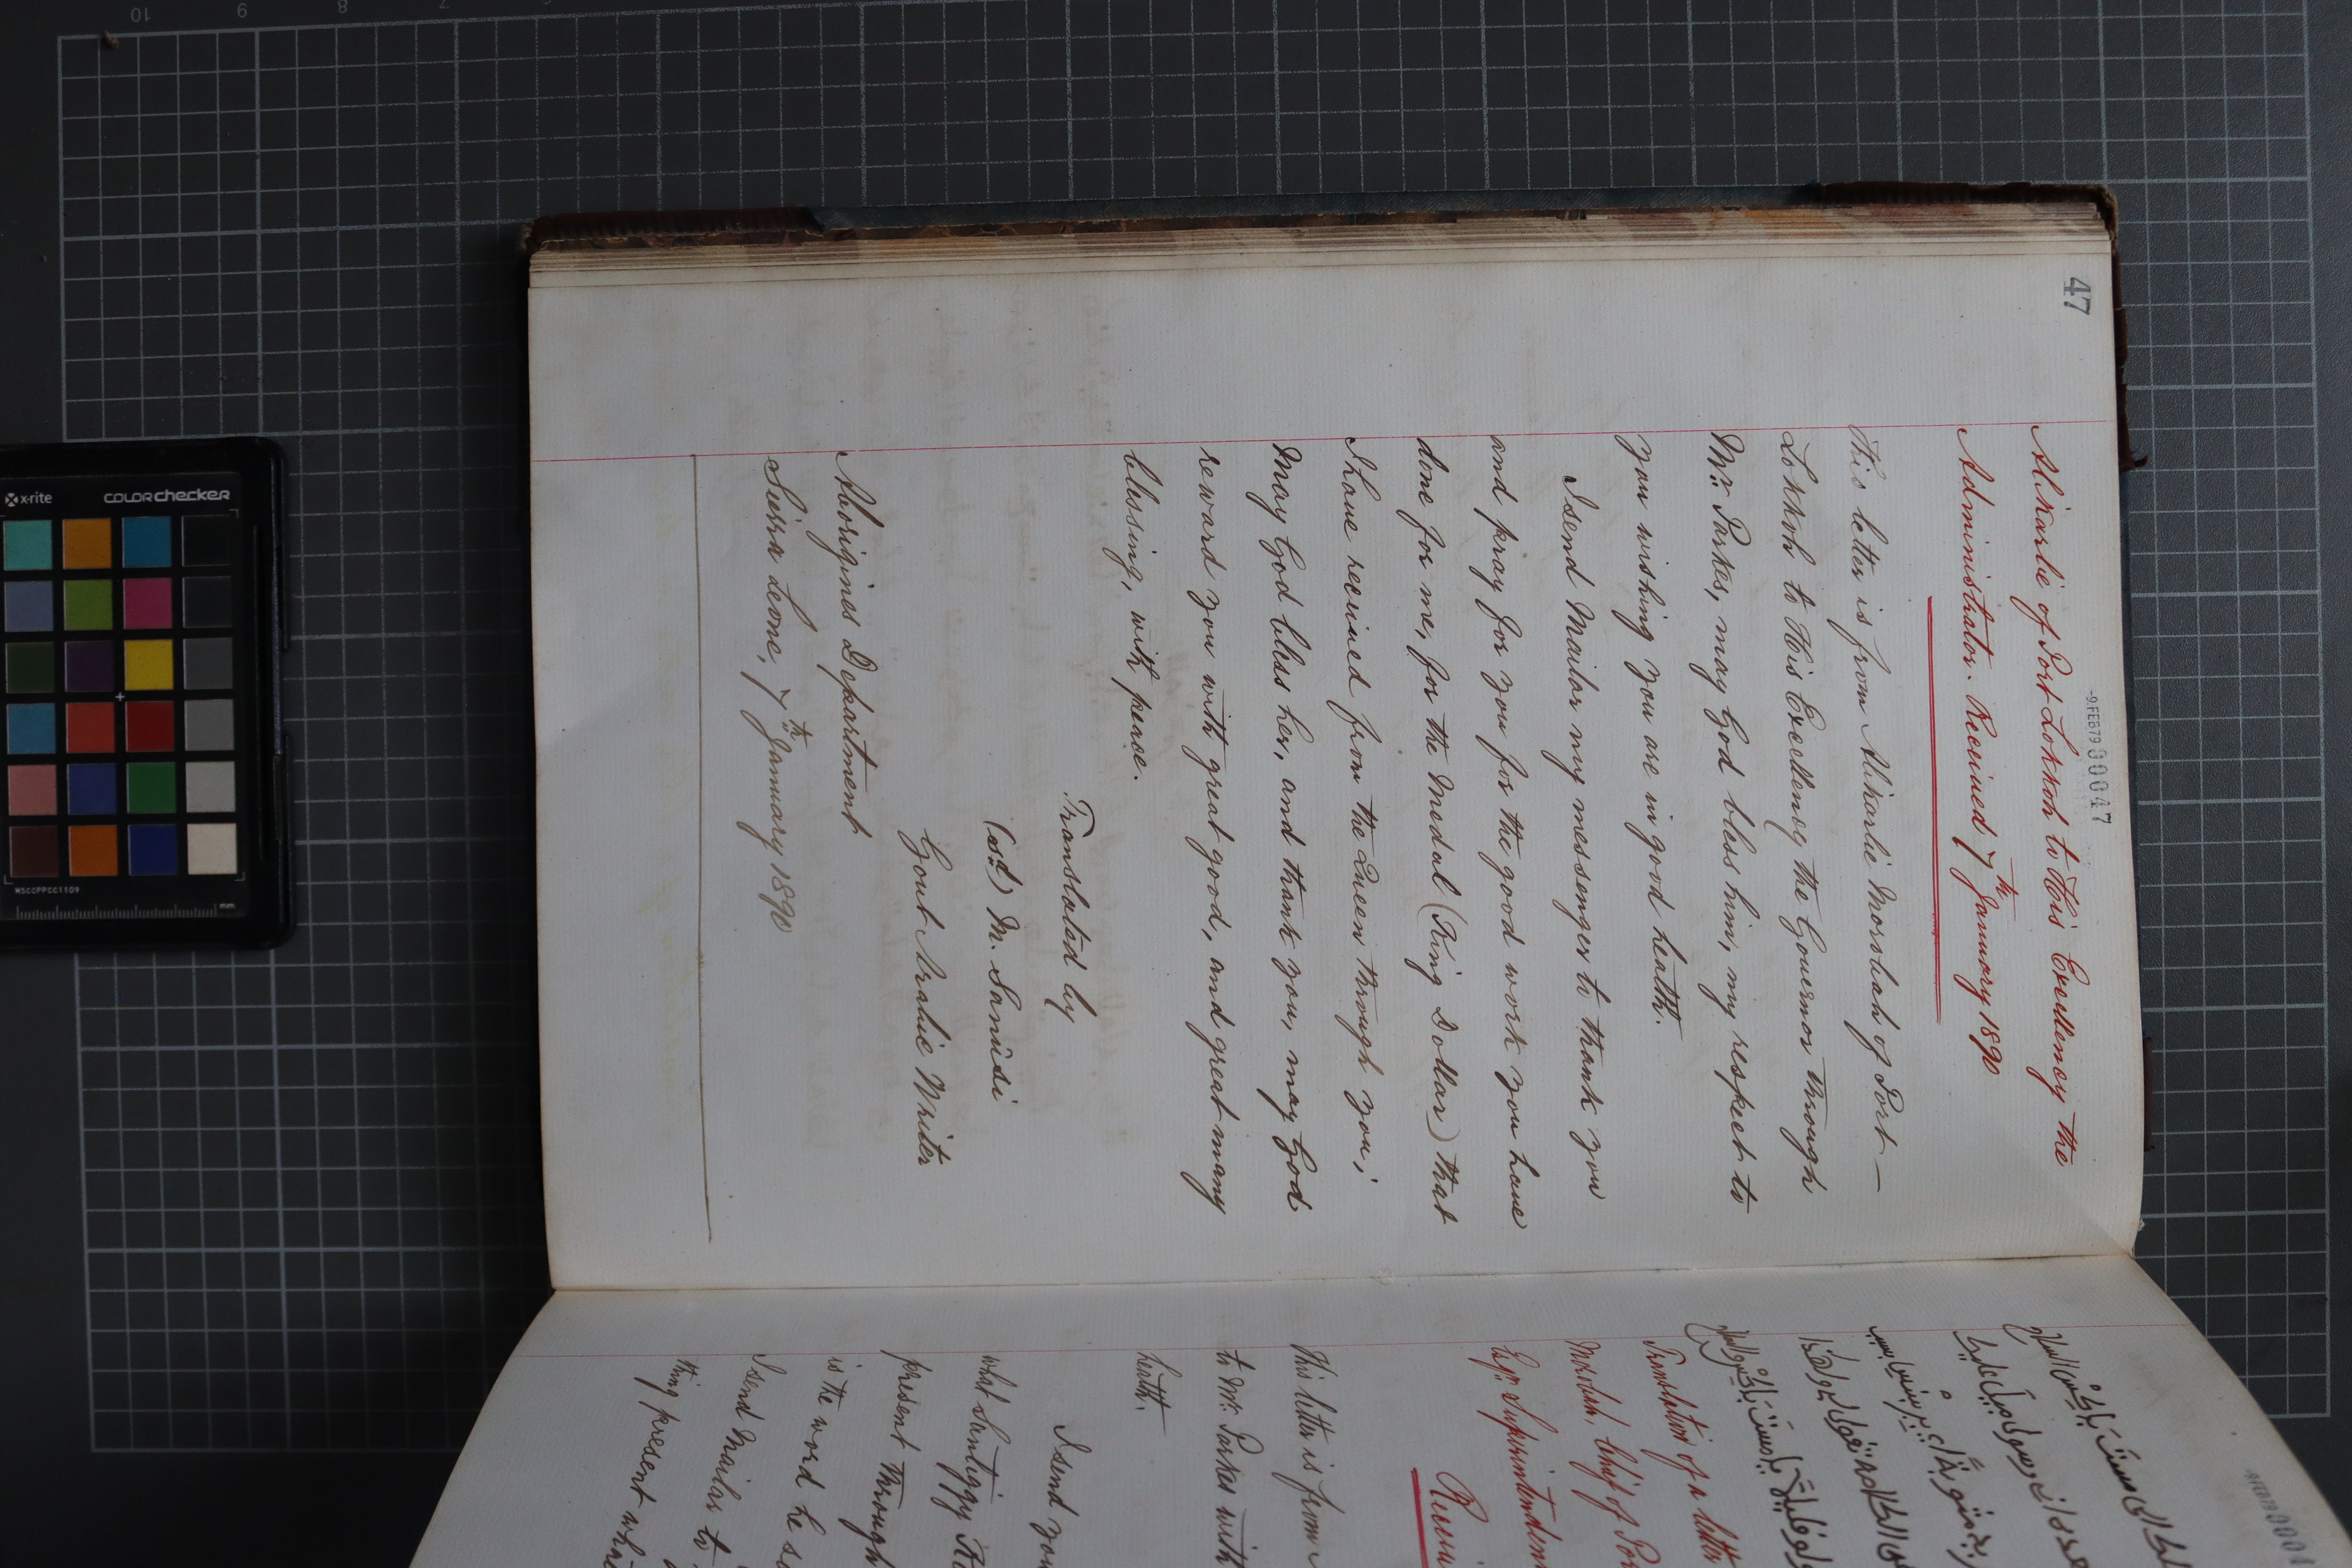 47
-9.FEB79 00047
Alikarlie of Port Lokkoh to His Excellency the
Administrator. Received 7th January 1890
This letter is from Alikarlie Morobah of Port—
Lokkoh to His Excellency the Governor through
Mr. Parkes, may God bless him, my respect to
you wishing you are in good health.
I send Mailar my messenger to thank you
and pray for you for the good work you have
done for me, for the Medal (King Dollar) that
I have received from the Queen through you;
May God bless her, and thank you, may God
reward you with great good, and great many
blessing, with peace.
Translated by
(sd) M. Sanūsi
Govt Arabic Writer
Aborigines Department
Sierra Leone, 7th January 1890
-9.FEB79 000
Translation of a letter
Morobah, Chief of Por
Esqr. Superintenden
This letter is from
to Mr. Parkes with
health.
I send you
what Santiggy
present through
is the word he s
I send Mailar to
thing present wha
x-rite
colorchecker
MSCCPPCC1109
mm
10
9
8
7